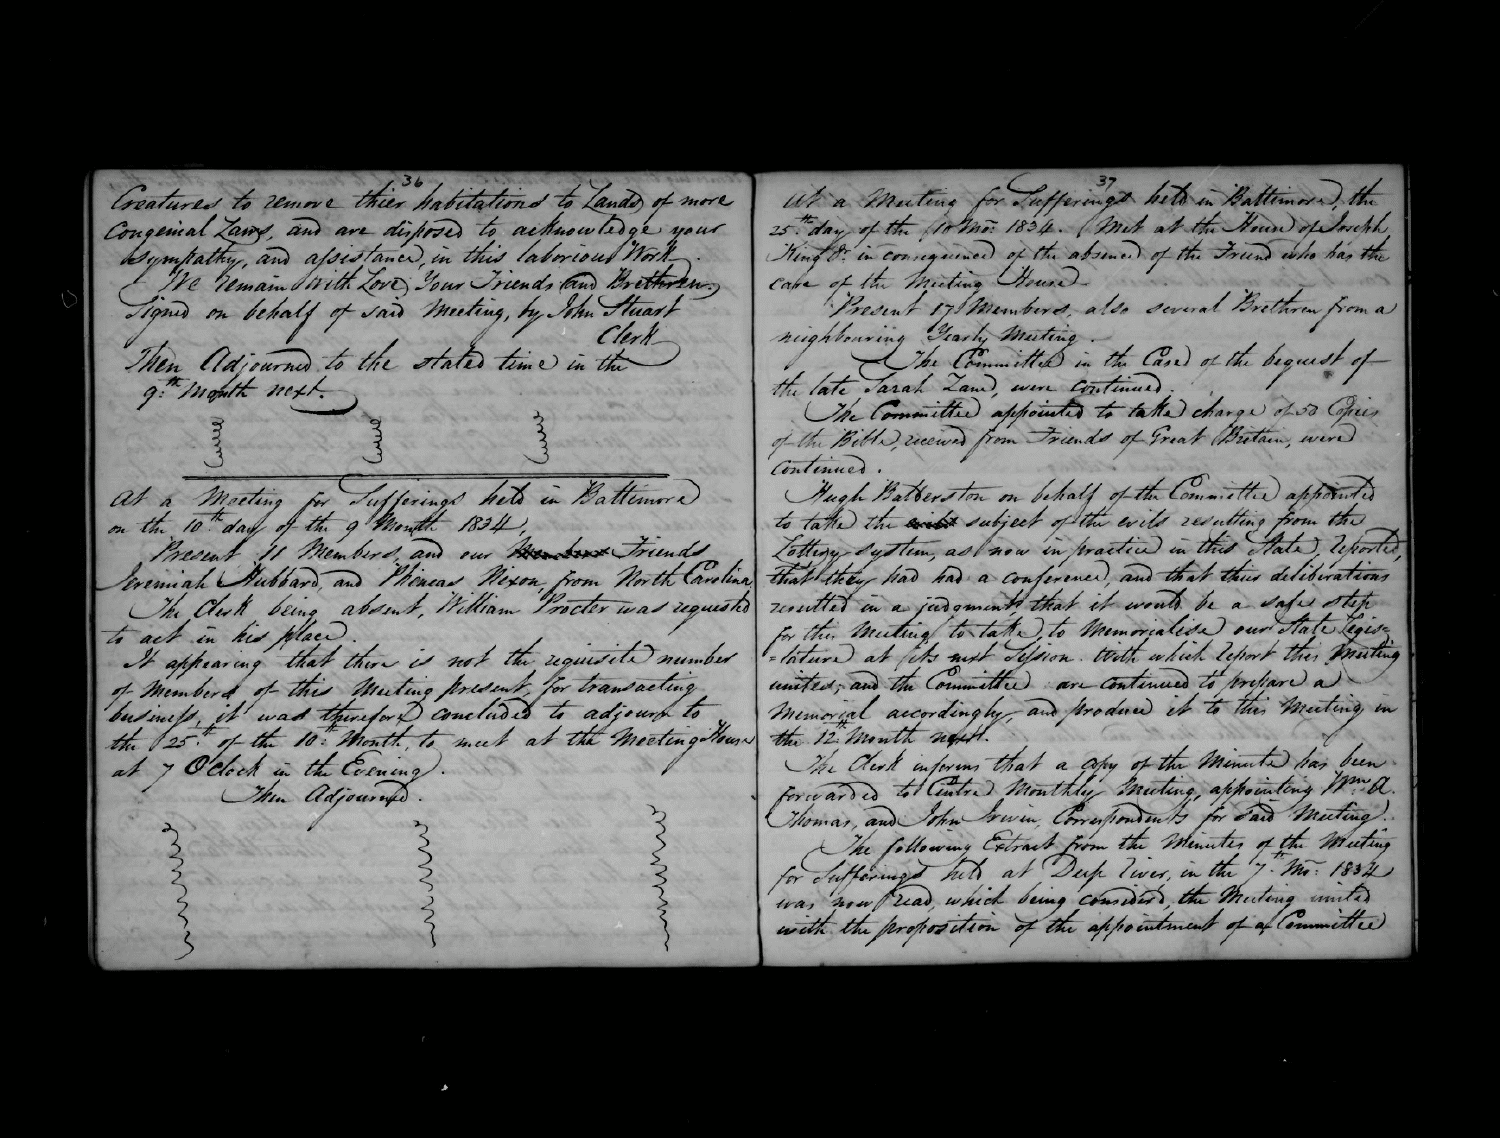 36
Creatures to remove thier habitations to Lands of more
Congenial Laws, and are disposed to acknowledge your
sympathy, and assistance, in this laborious Work.
We remain with Love, Your Friends and Brethren.
Signed on behalf of said Meeting, by John Stuart
Clerk
Then Adjourned to the stated time in the
9th Month next.
At a Meeting for Sufferings held in Baltimore
on the 10th day of the 9 Month 1834,
Present 11 Members, and our Members Friends
Jeremiah Hubbard, and Phineas Nixon, from North Carolina
The Clerk being absent, William Procter was requested
to act in his place.
It appearing that there is not the requisite number
of Members of this Meeting present, for transacting
business, it was therefore concluded to adjourn to
the 25th of the 10th Month, to meet at the Meeting House
at 7 OClock in the Evening.
Then Adjourned.
37
At a Meeting for Sufferings held in Baltimore, the
25th day of the 10 Mo: 1834. Met at the House of Joseph
King Jr. in consequence of the absence of the Friend who has the
care of the Meeting House.
Present 17 Members, also several Brethren from a
neighbouring Yearly Meeting.
The Committee in the Case of the bequest of
the late Sarah Zane, were continued.
The Committee appointed to take charge of 50 Copies
of the Bible, received from Friends of Great Britain, were
continued.
Hugh Balderston on behalf of the Committee appointed
to take the evils subject of the evils resulting from the
Lottery system, as now in practice in this State, reported,
that they had had a conference, and that their deliberations
resulted in a judgment, that it would be a safe step
for this Meeting to take, to Memorialise our State Legis=
=lature at its next Session. With which report this Meeting
unites; and the Committee are continued to prepare a
Memorial accordingly, and produce it to this Meeting in
the 12th Month next.
The Clerk informs that a copy of the Minute has been
forwarded to Centre Monthly Meeting, appointing Wm A.
Thomas, and John Irwin, Correspondents for said Meeting.
The following Extract from the Minutes of the Meeting
for Sufferings held at Deep River, in the 7th Mo: 1834
was now read, which being considerd, the Meeting united
with the proposition of the appointment of a Committee